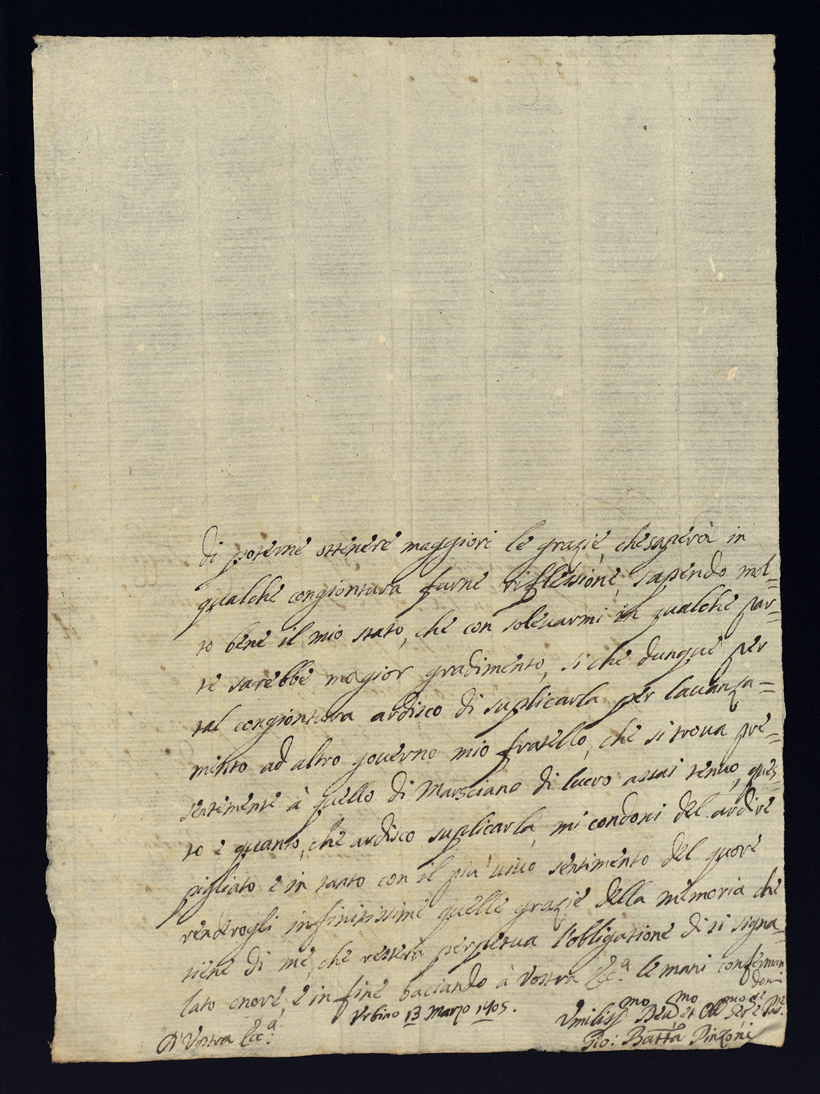 di poterne ottenere maggiori le grazie, che saperà in
qualche congiontura farne riflessione, sapendo mol=
to bene il mio stato, che con solevarmi in qualche par=
te sarebbe magior gradimento, si che dunque per
tal congiontura ardisco di suplicarla per lavanza=
mento ad altro governo mio fratello, che si trova pre=
sentemente à quello di Marsciano di lucro assai tenue, ques=
to è quanto, che ardisco suplicarla, mi condoni del ardire
pigliato e in tanto con il più vivo sentimento del quore
renderogli infinitissime quelle grazie della memoria che
tiene di me, che resterà perpetua l'obligatione di si signa=
lato onore, e in fine baciando à Vostra Ecc.ª le mani conferman
domi
Urbino 13 Marzo 1705.
D'Vostra Ecc.ª
Umiliss.mo Dev.mo et Obl.mo Ser.e
Gio: Batta Pinzoni